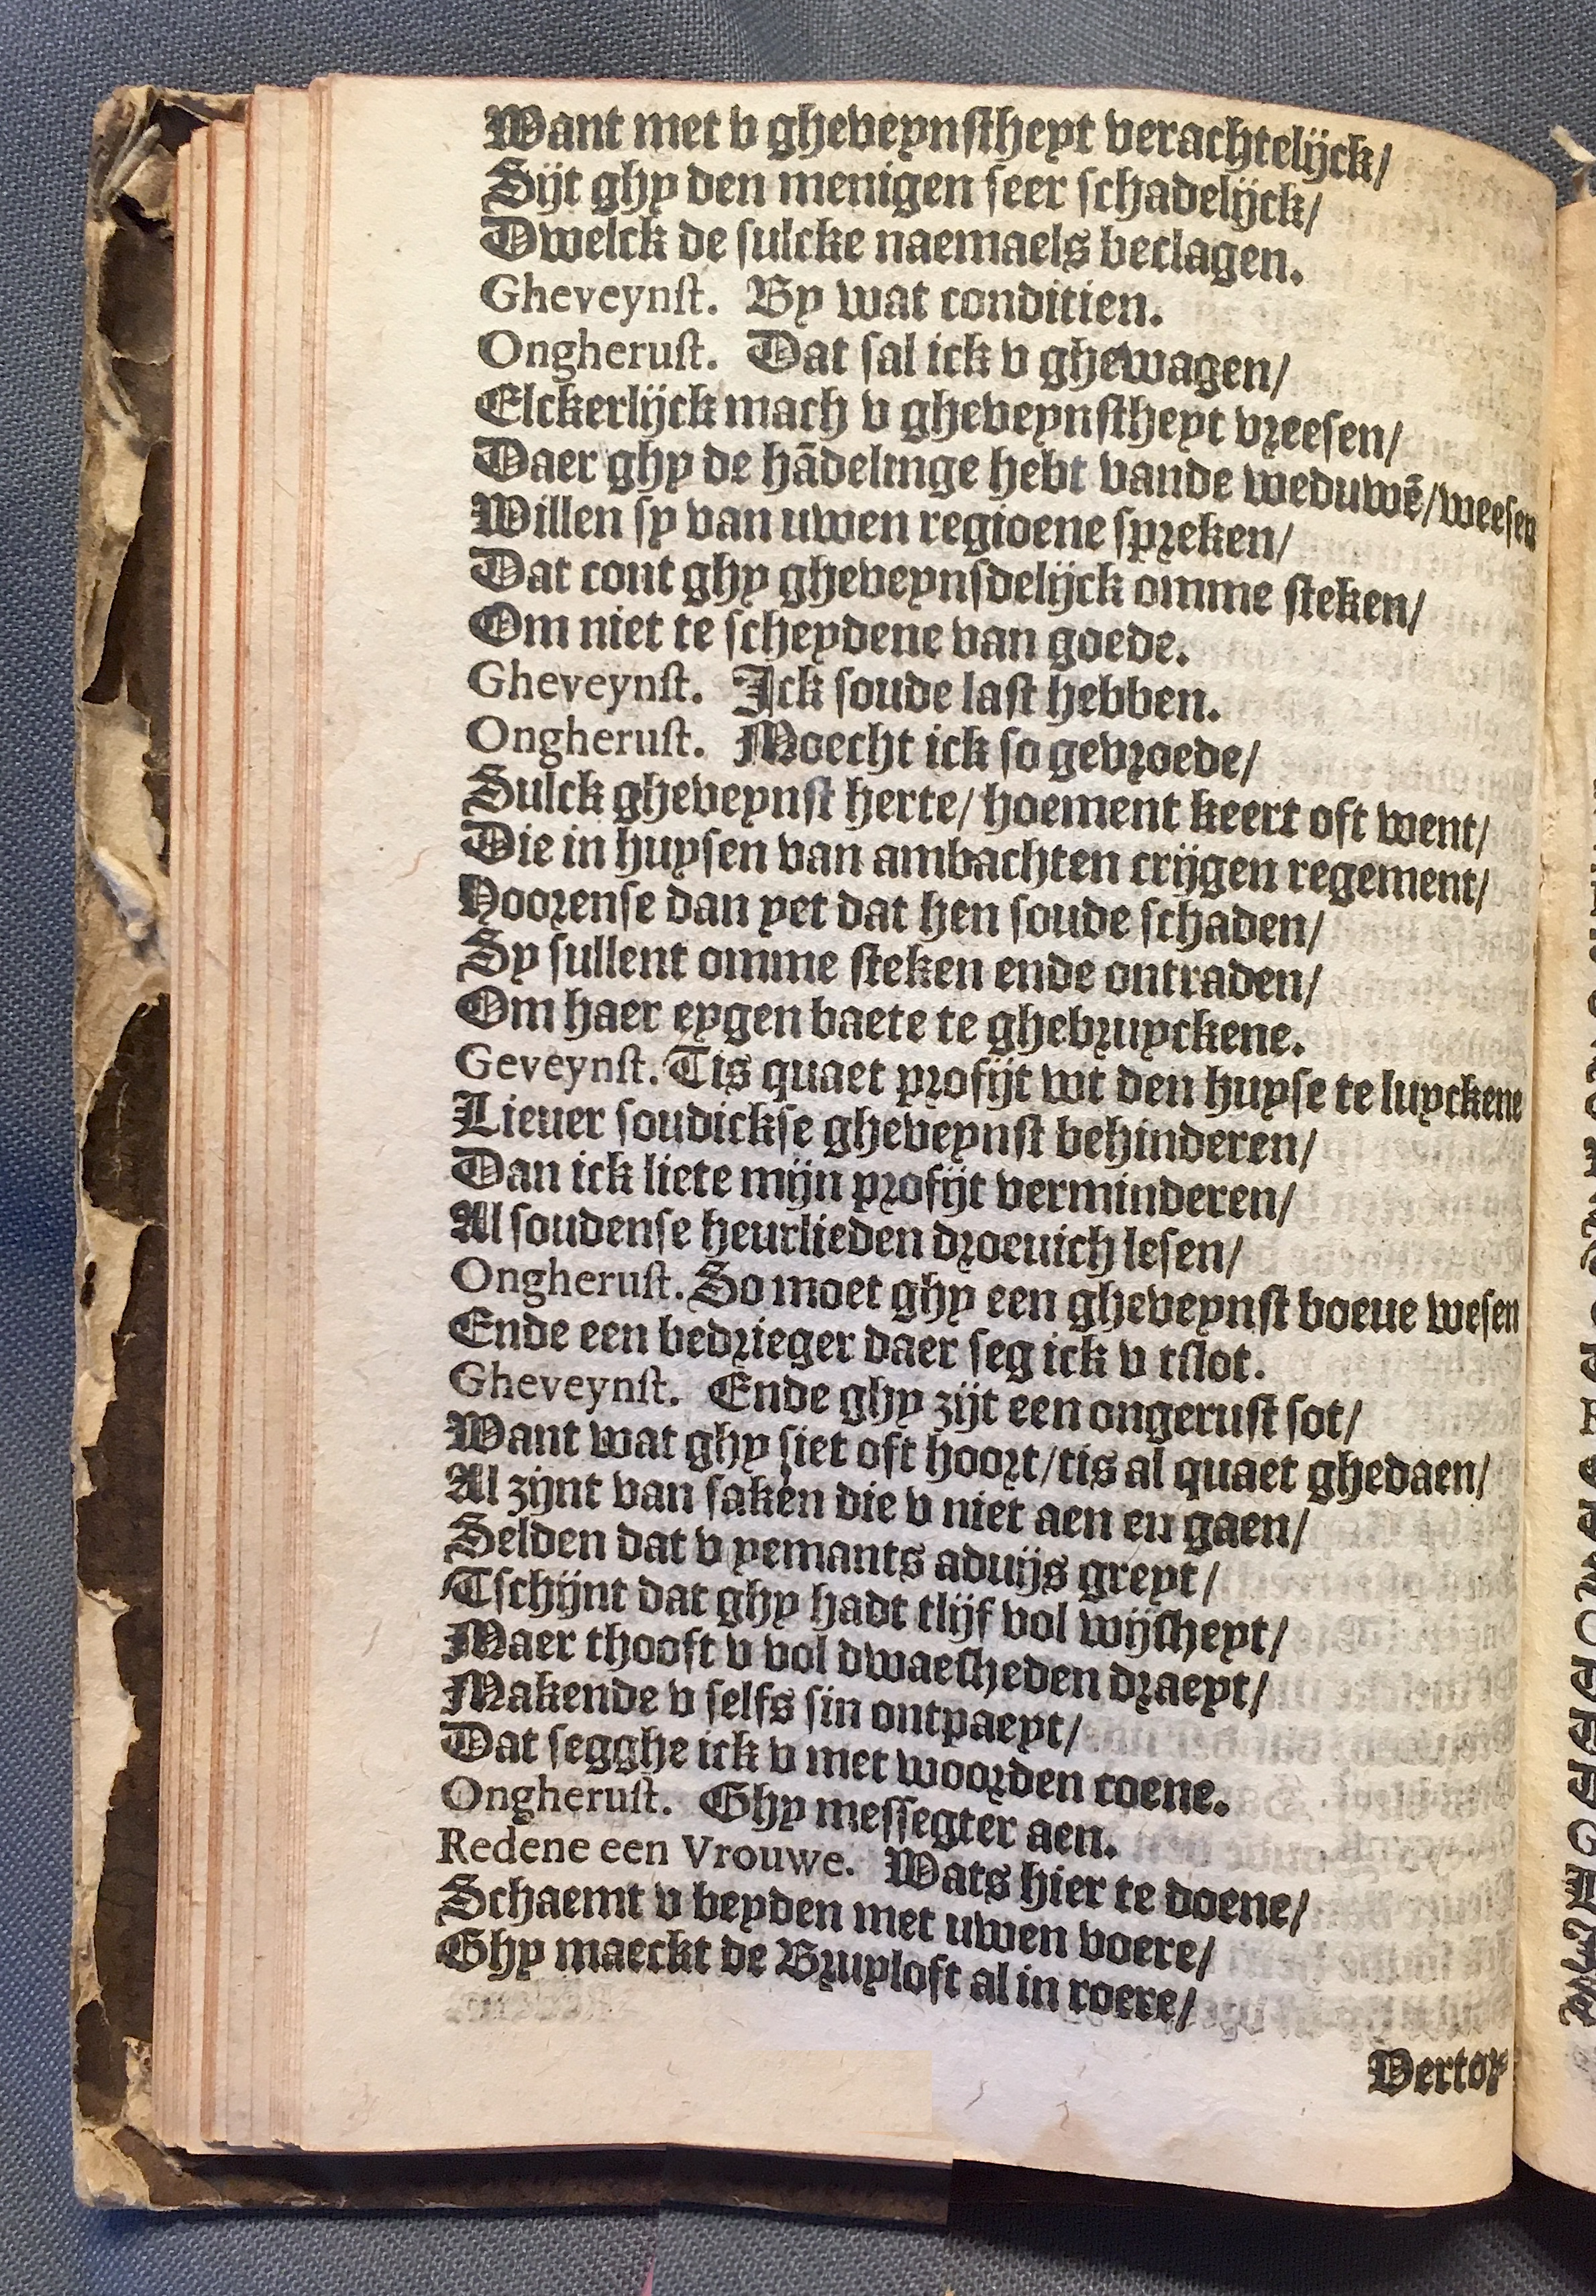 Want met v gheveynstheyt verachtelijck/
Sijt ghy den menigen seer schadelijck/
Dwelck de sulcke naemaels beclagen.
Gheveynst. By wat conditien.
Ongherust. Dat sal ick v ghewagen/
Elckerlijck mach v gheveynstheyt vreesen/
Daer ghy de hādelinge hebt vande weduwē/weesen
Willen sy van uwen regioene spreken/
Dat cont ghy gheveynsdelijck omme steken/
Om niet te scheydene van goede.
Gheveynst. Ick soude last hebben.
Ongherust. Moecht ick so gevroede/
Sulck gheveynst herte/ hoement keert oft went/
Die in huysen van ambachten crijgen regement/
Hoorense dan yet dat hen soude schaden/
Sy sullent omme steken ende ontraden/
Om haer eygen baete te ghebruyckene.
Geveynst. Tis quaet profijt wt den huyse te luyckene
Lieuer soudickse gheveynst behinderen/
Dan ick liete mijn profijt verminderen/
Al soudense heurlieden droeuich lesen/
Ongherust. So moet ghy een gheveynst boeue wesen
Ende een bedrieger daer seg ick v tslot.
Gheveynst. Ende ghy zijt een ongerust sot/
Want wat ghy siet oft hoort/tis al quaet ghedaen/
Al zijnt van saken die v niet aen en gaen/
Selden dat v yemants aduijs greyt/
Tschijnt dat ghy hadt tlijf vol wijsheyt/
Maer thooft v vol dwaesheden draeyt/
Makende v selfs sin ontpaeyt/
Dat segghe ick v met woorden coene.
Ongherust. Ghy messegter aen.
Redene een Vrouwe. Wats hier te doene/
Schaemt v beyden met uwen voere/
Ghy maeckt de Bruyloft al in roere/
Vertor-